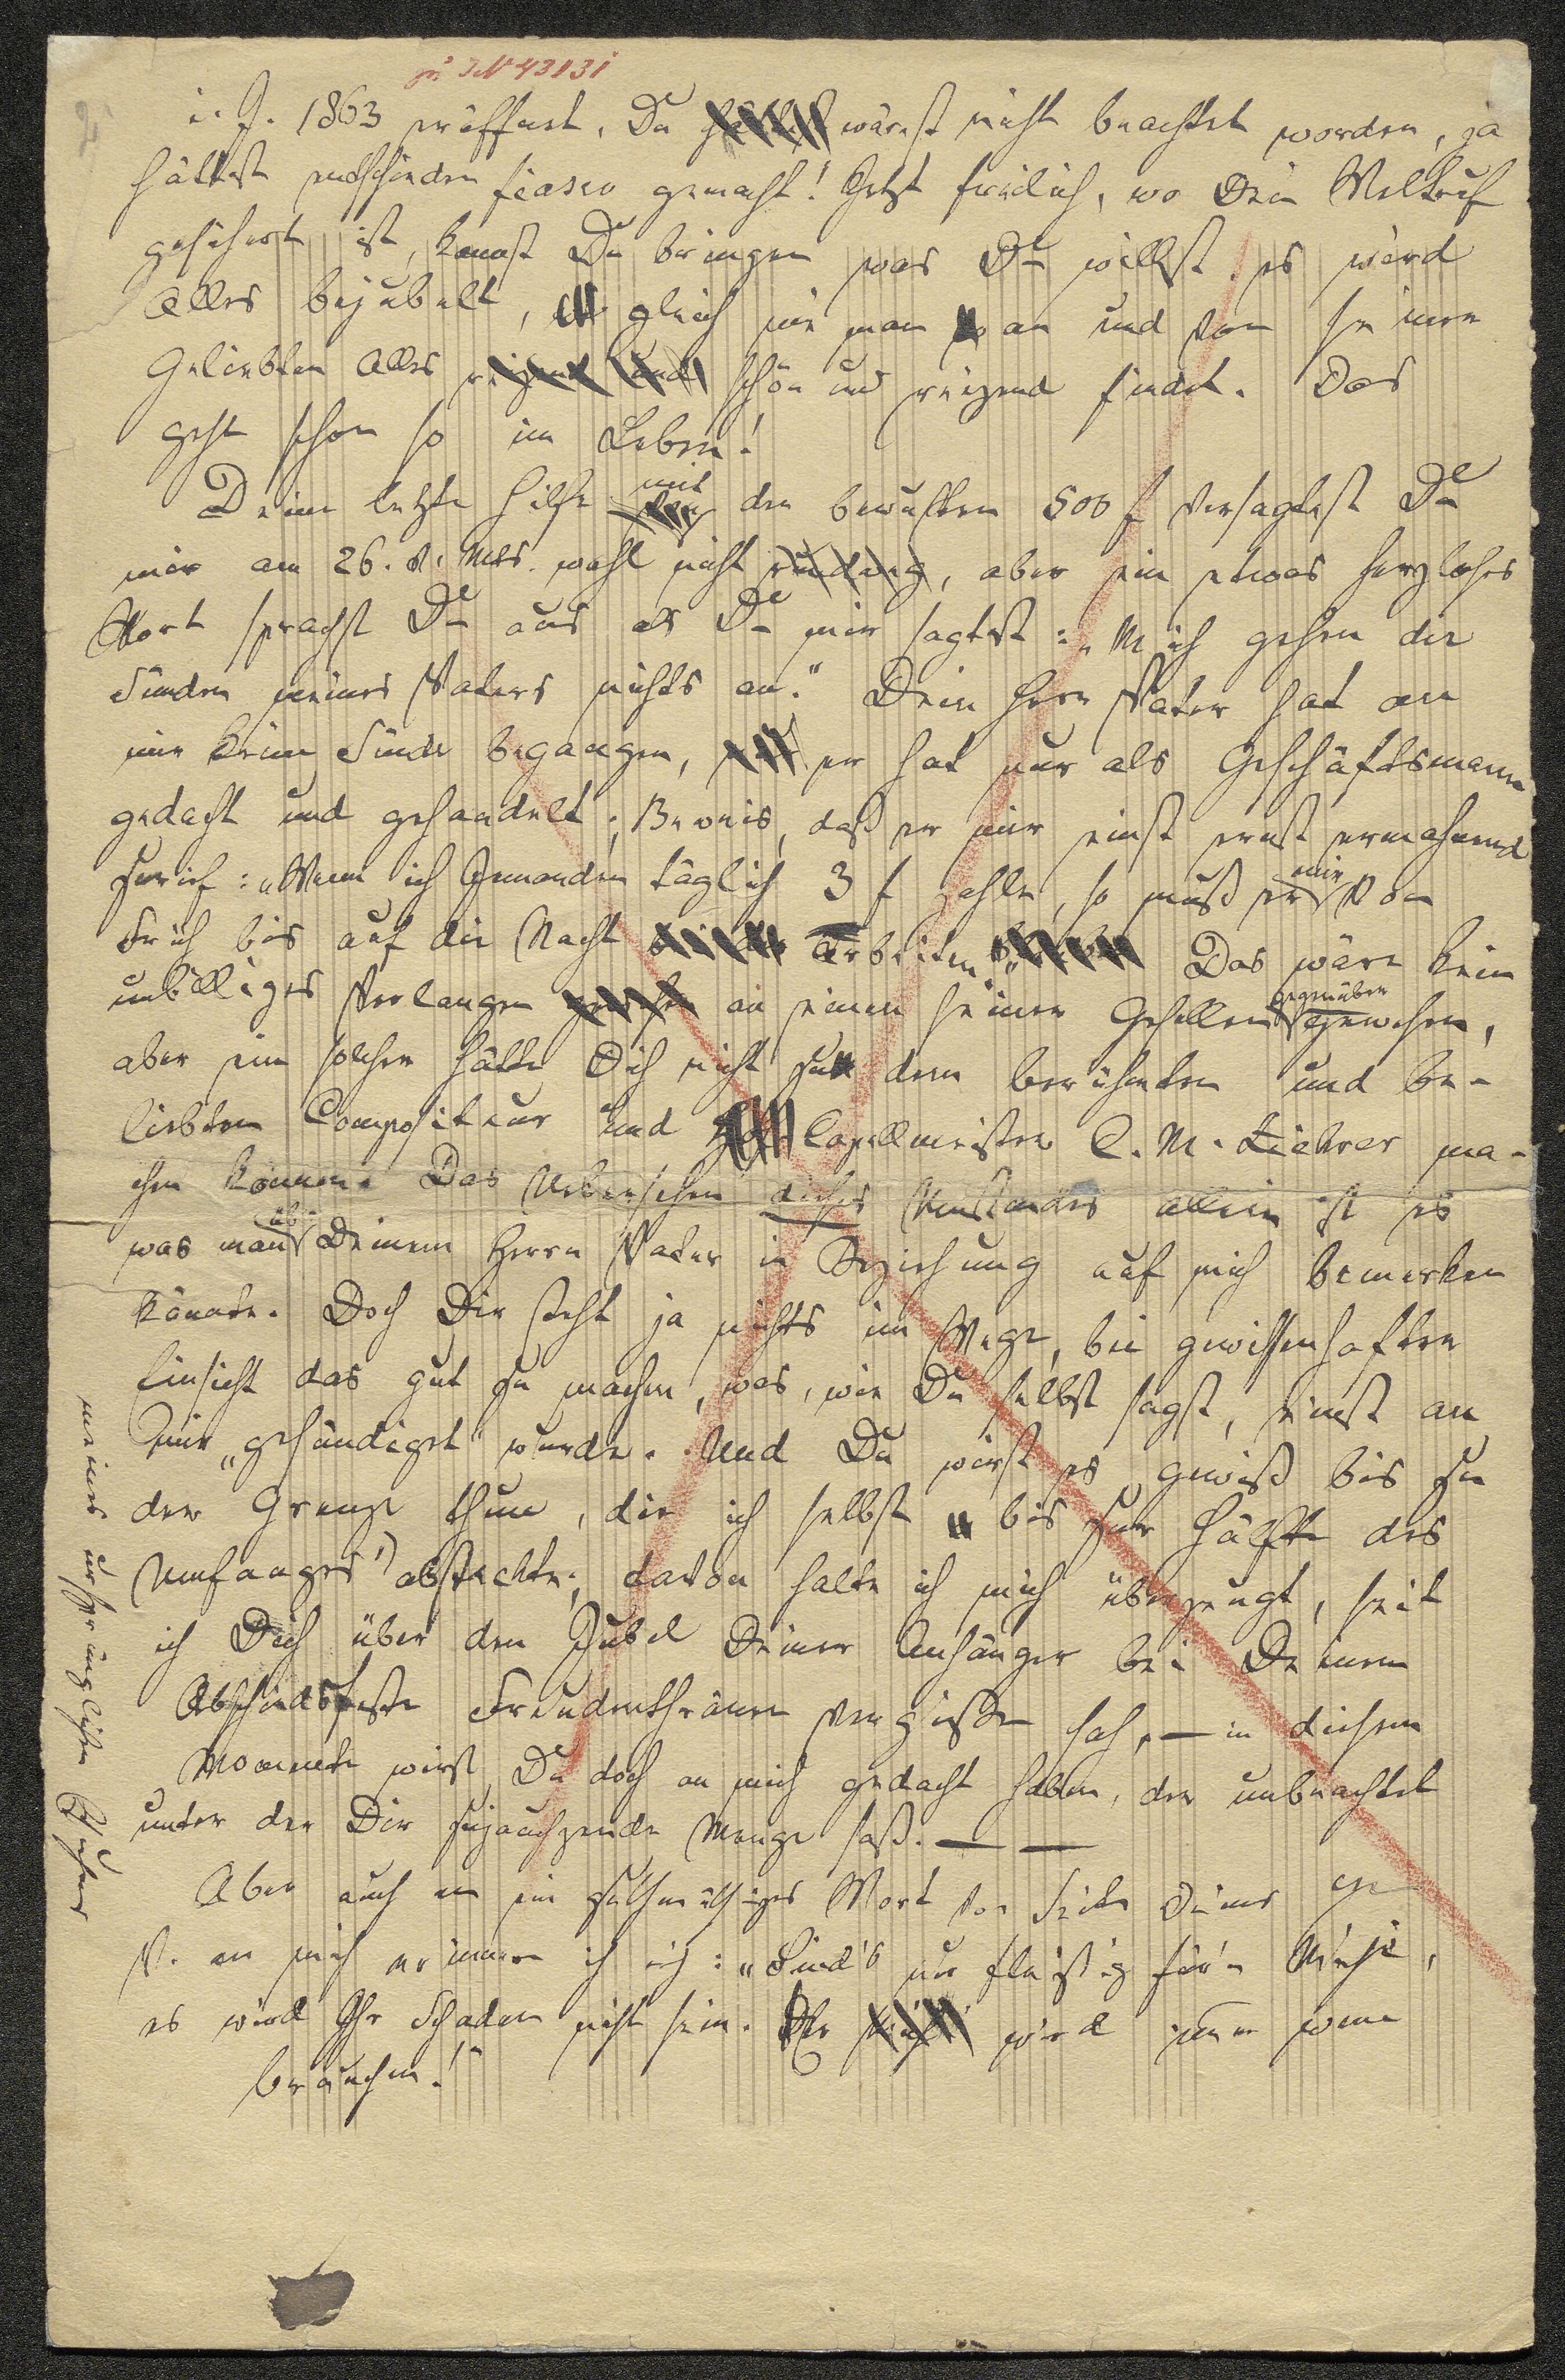 zu IN 43131
i. J. 1863 eröffnet, Du wärest nicht beachtet worden, ja
hättest entschieden fiasco gemacht! Jetzt freilich, wo Dein Weltruf
gesichert ist, kannst Du bringen was Du willst, es wird
Alles bejubelt, gleich wie man an und von seiner
Geliebten Alles reizend und schön und reizend findet. Das
geht schon so im Leben!
Deine letzte Hilfe mit den bewußten 500 f versagtest Du
mir am 26. v. Mts. wohl nicht, aber ein etwas herzloses
Wort sprachst Du aus als Du mir sagtest: „Mich gehen die
Sünden meines Vaters nichts an." Dein Herr Vater hat an
mir keine Sünde begangen, er hat nur als Geschäftsmann
gedacht und gehandelt; Beweis, daß er mir einst ernst ermahnend
zurief: „Wenn ich Jemanden täglich 3 f zahle, so muß er mir von
Früh bis auf die Nacht arbeiten." Das wäre kein
unbilliges Verlangen an einen seiner Gesellen gegenüber gewesen,
aber ein solcher hätte Dich nicht zu dem berühmten und be-
liebten Compositeur und Capellmeister C. M. Ziehrer ma-
chen können. Das Uebersehen dieses Umstandes allein ist es
was man Deinem Herrn Vater in Beziehung auf mich bemerken
könnte. Doch Dir steht ja nichts im Wege, bei gewissenhafter
Einsicht das gut zu machen, was, wie Du selbst sagst, einst an
mir „gesündiget" wurde. Und Du wirst es gewiß bis zu
der Grenze thun, die ich selbst „bis zur Hälfte des
Umfanges" absteckte; davon halte ich mich überzeugt, seit
ich Dich über den Jubel Deiner Anhänger bei Deinem
Abschiedsfeste Freudenthränen vergießen sah, — in diesem
Momente wirst Du doch an mich gedacht haben, der unbeachtet
unter der Dir zujauchzende Menge saß. — —
Aber auch an ein gutmüthiges Wort von Seite Deines H
V. an mich erinnere ich mich: „Sind's nur fleißig für'n Michi,
es wird Ihr Schaden nicht sein. Er wird immer wenn
brauchen!"
meines ursprünglichen